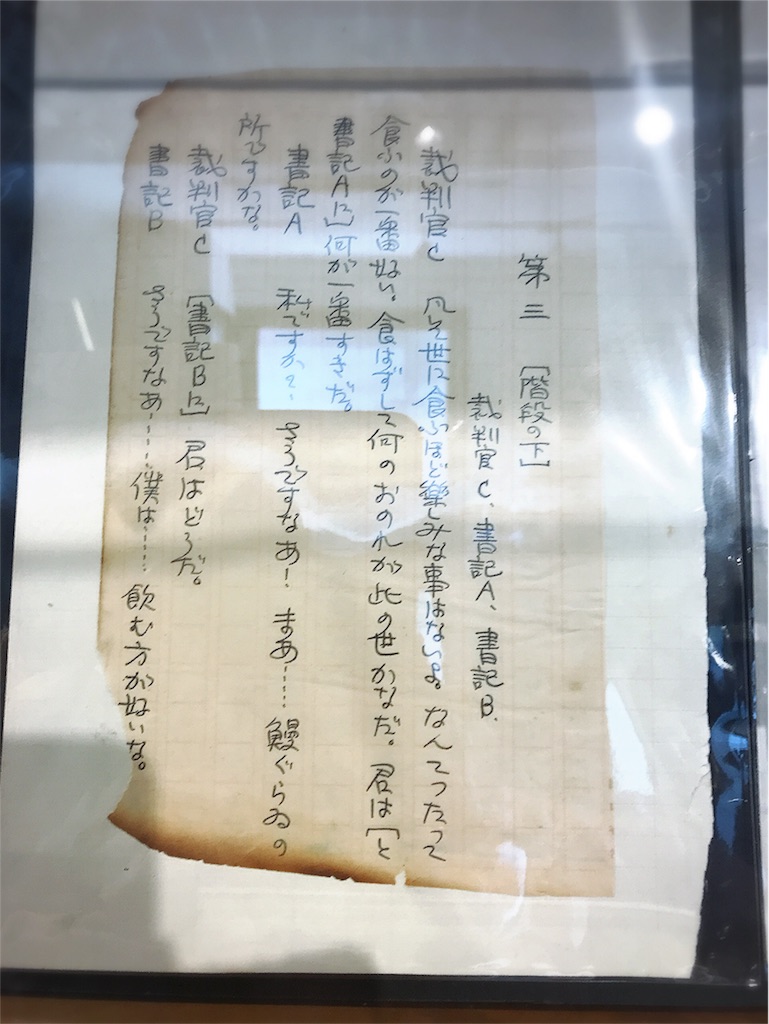 第三　[階段の下]
裁判官C、書記A、書記B、
裁判官C　凡そ世に食ふほど楽しみな事はないよ。なんてつたつて
食ふのが一番好い。食はずして何のおのれが此の世かなだ。君は[と
書記Aに]何が一番すきだ。
書記A　私ですか？　さうですなあ！　まあ……　鰻ぐらゐの
所ですかな。
裁判官C　[書記Bに]　君はどうだ。
書記B　さうですなあ……僕は……　飲む方が好いな。